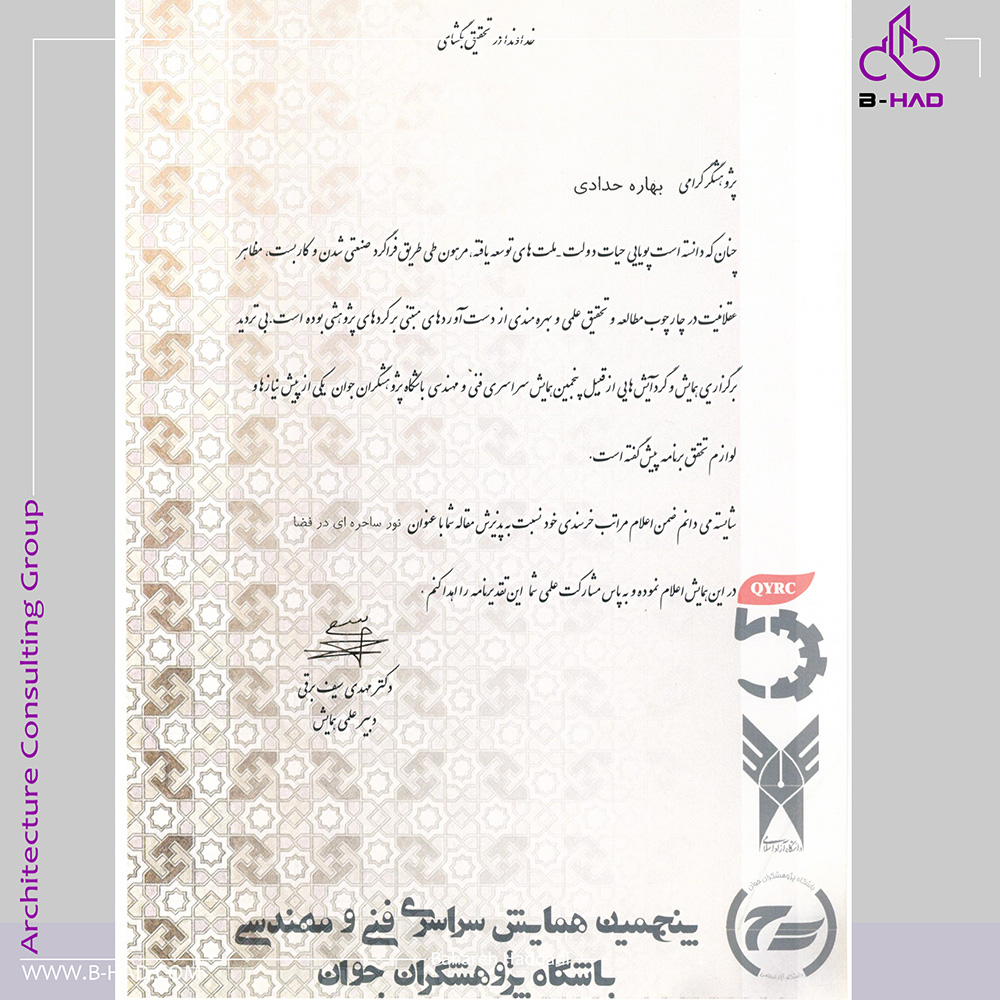 خداوندا در تحقیق بگشای
B-HAD
پژوهشگر گرامی بهاره حدادی
چنان که دانسته است پویایی حیات دولت - ملت های توسعه یافته، مرهون طی طریق فراگرد صنعتی شدن و کاربست، مظاهر
عقلانیت در چارچوب مطالعه و تحقیق علمی و بهره مندی از دست آوردهای مبتنی بر کردهای پژوهشی بوده است. بی تردید
برگزاری همایش و گردآیش هایی از قبیل پنجمین همایش سراسری فنی و مهندسی باشگاه پژوهشگران جوان یکی از پیش نیازها و
لوازم تحقق برنامه پیش گفته است.
شایسته می دانم ضمن اعلام مراتب خرسندی خود نسبت به پذیرش مقاله شما با عنوان نور ساحره ای در فضا
در این همایش اعلام نموده و به پاس مشارکت علمی شما این تقدیرنامه را اهدا کنم.
QYRC
دکتر مهدی سیف برقی
دبیر علمی همایش
دانشگاه آزاد اسلامی
باشگاه پژوهشگران جوان
دانشگاه آزاد اسلامی
پنجمین همایش سراسری فنی و مهندسی
باشگاه پژوهشگران جوان
Bahareh Haddadi
Architecture Consulting Group
WWW.B-HAD.COM